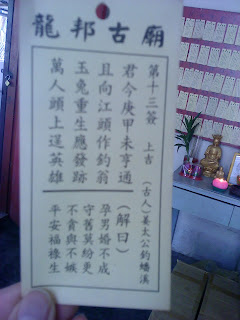 龍邦古廟
第十三簽 上吉 (古人)姜太公釣蟠溪
君今庚甲未亨通
且向江頭作釣翁
玉兔重生應發跡
萬人頭上逞英雄
(解曰)
孕男婚不成
守舊莫紛更
不貪與不嫉
平安福祿生